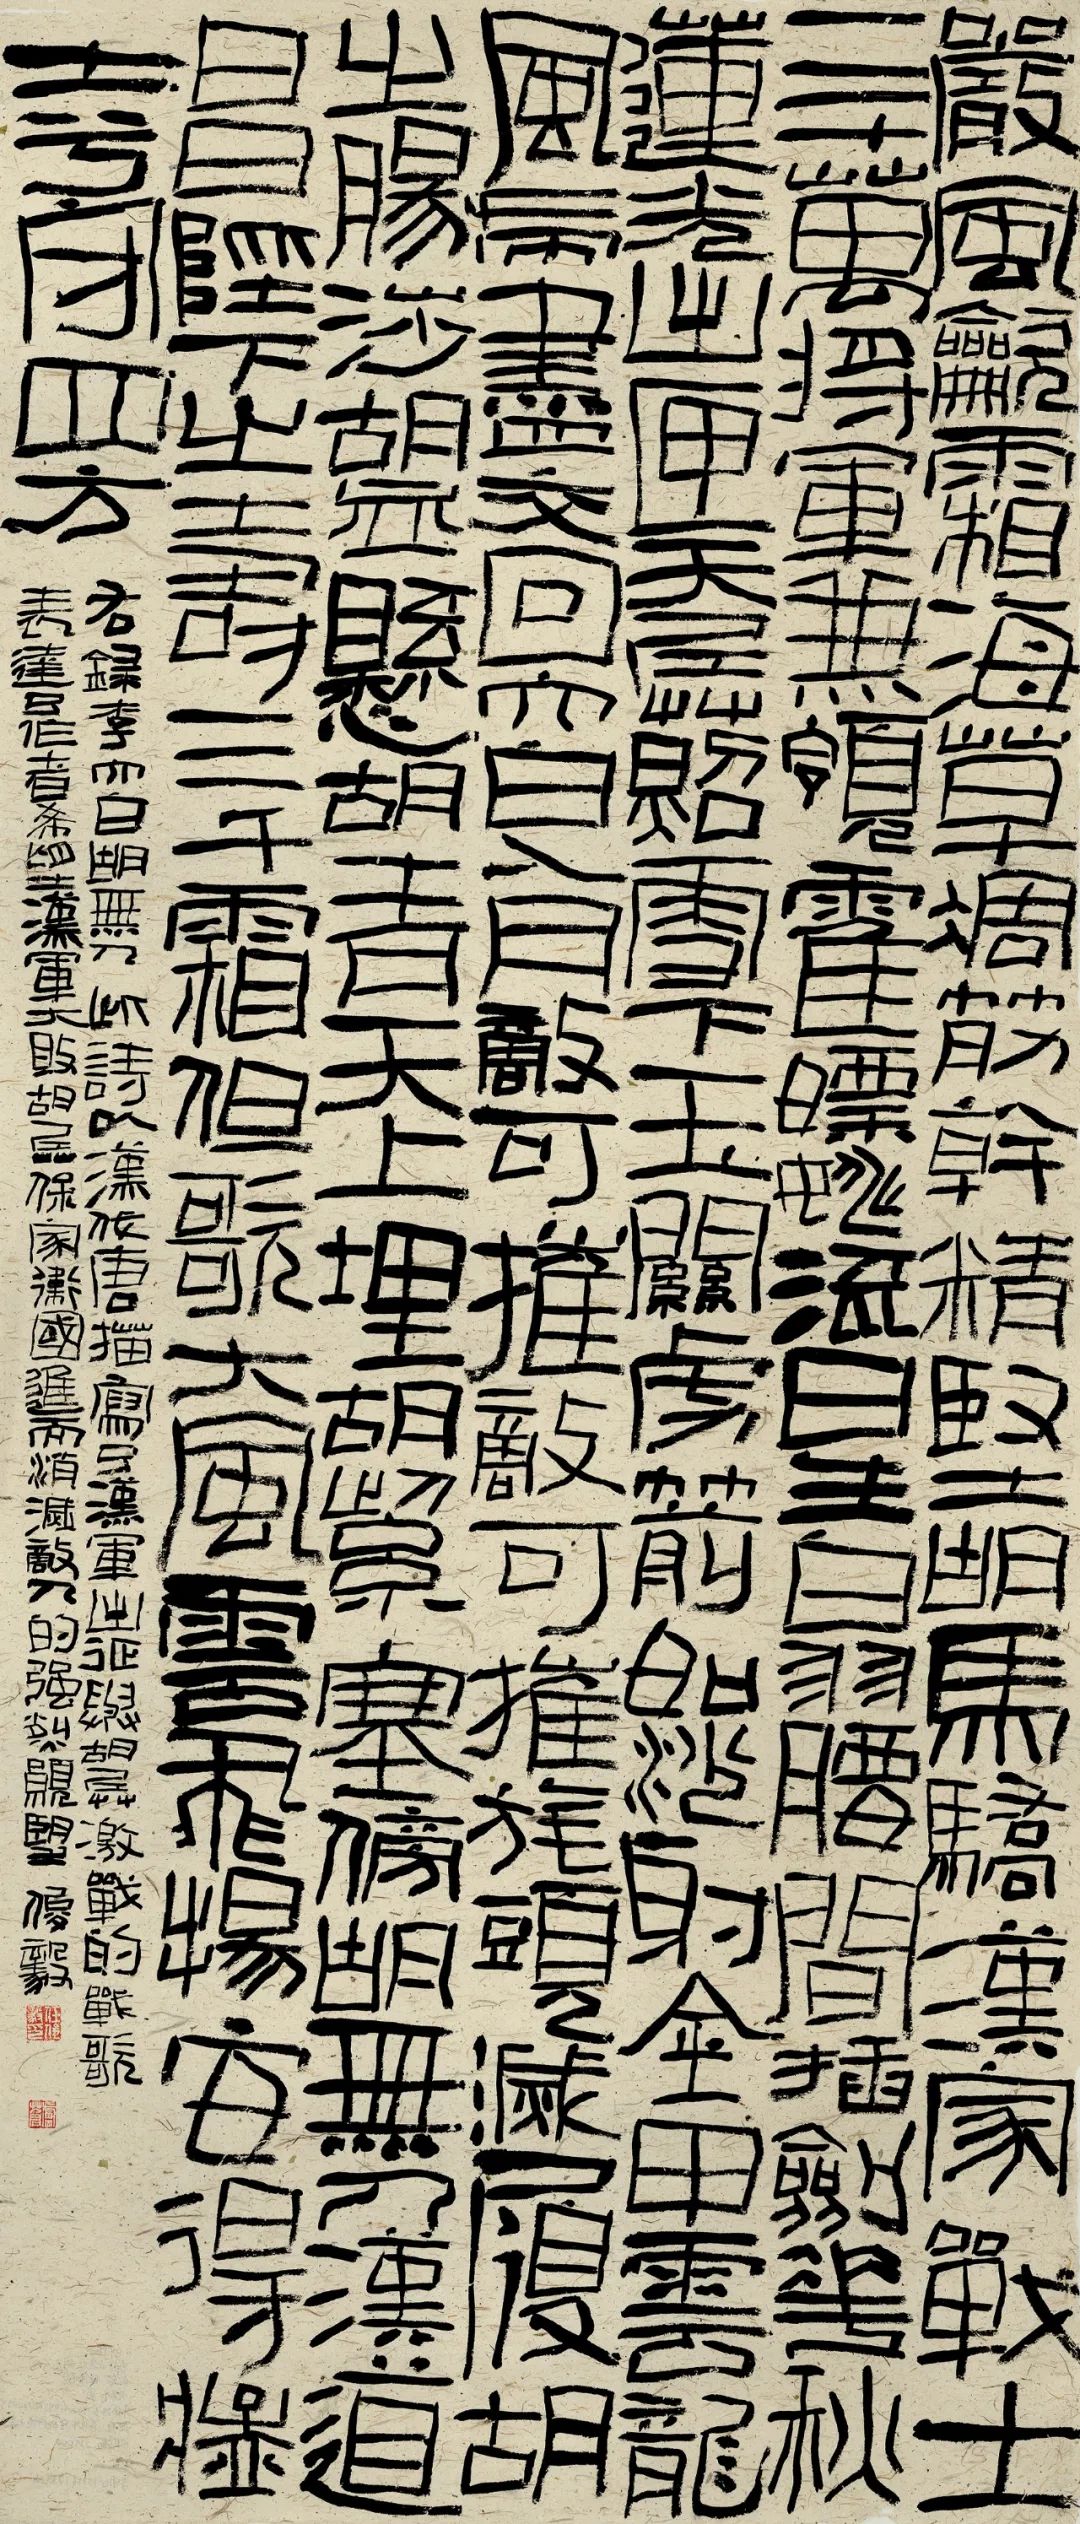 嚴風吹霜海草凋筋幹精堅胡馬驕漢家戰士
三十萬將軍兼領霍嫖姚流星白羽腰間插劍花秋
蓮光出匣天兵照雪下玉關虜箭如沙射金甲雲龍
風虎盡交回太白入月敵可摧敵可摧旄頭滅履胡
之腸涉胡血懸胡青天上埋胡紫塞傍胡無人漢道
昌陛下之壽三千霜但歌大風雲飛揚安得猛
士兮守四方
右錄李太白胡無人此詩以漢代唐描寫了漢軍出征與胡兵激戰的戰歌
表達了作者希望漢軍大敗胡兵保家衛國進而消滅敵人的強烈願望 俊毅